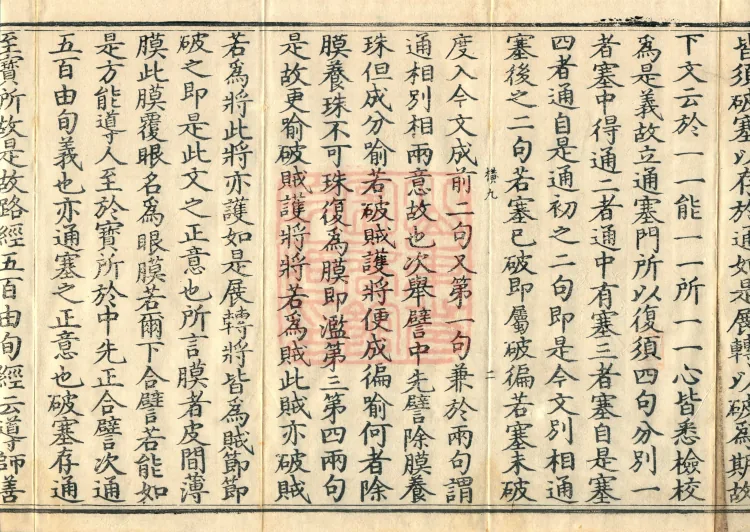 皆須破塞以存於通如是展轉以破為期故
下文云於一一能一一所一一心皆悉檢校
為是義故立通塞門所以復須四句分別一
者塞中得通二者通中有塞三者塞自是塞
四者通自是通初之二句即是今文別相通
塞後之二句若塞已破即屬破徧若塞未破
橫九
二
度入今文成前二句又第一句兼於兩句謂
通相別相兩意故也次舉譬中先譬除膜養
珠但成分喻若破賊護將便成徧喻何者除
膜養珠不可珠復為膜即濫第三第四兩句
是故更喻破賊護將將若為賊此賊亦破賊
若為將此將亦護如是展轉將皆為賊節節
破之即是此文之正意也所言膜者皮間薄
膜此膜覆眼名為眼膜若爾下合譬若能如
是方能導人至於寶所於中先正合譬次通
五百由旬義也亦通塞之正意也破塞存通
至寶所故是故路經五百由旬經云導師善